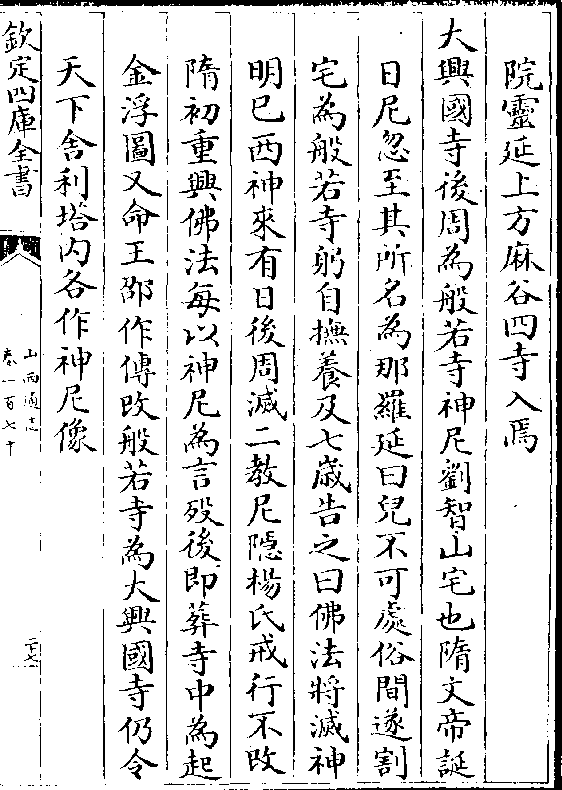 院靈延上方麻谷四寺入焉
大興國寺後周為般若寺神尼劉智山宅也隋文帝誕
日尼忽至其所名為那羅延曰兒不可處俗間遂割
宅為般若寺躬自撫養及七歲告之曰佛法將滅神
明已西神來有日後周滅二教尼隱楊氏戒行不改
隋初重興佛法每以神尼為言歿後即葬寺中為起
金浮圖又命王邵作傳改般若寺為大興國寺仍令
天下舍利塔内各作神尼像
欽定四庫全書
山西通志
卷一百七十